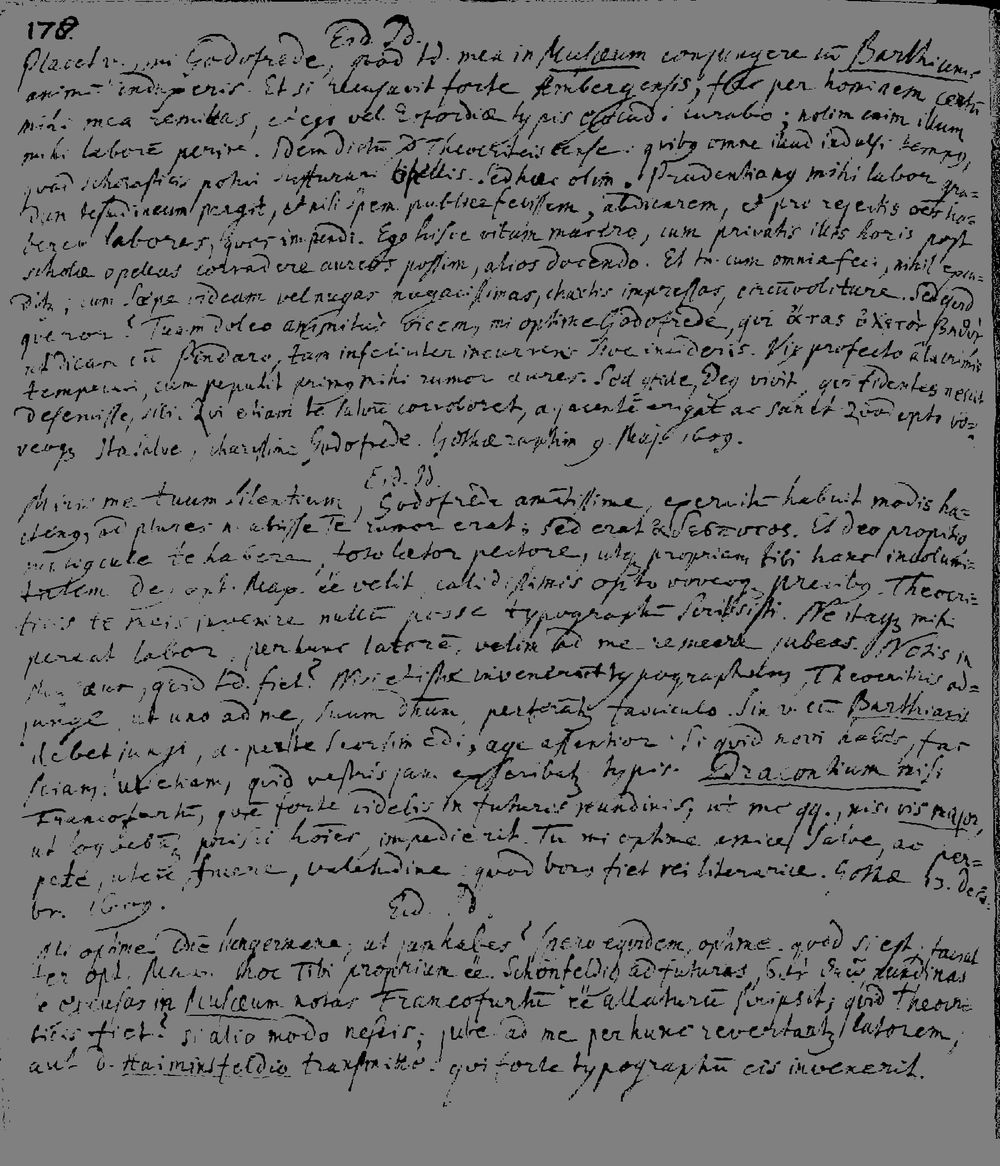 178.
Eid. Sd.
Placet v., mi Godofrede, quod td. mea in Musæum conjungere cū Barthianis
animū induxeris. Et si recusavit forte Ambergensis, fac per hominem certū
mihi mea remittas, et ego vel Erfordiæ typis excudi curabo; nolim enim illum
mihi laborē perire. Idem dictū de Theocriteis cense: quibq omne illud indulsi tempq,
quod scholasticis potui suffurari opellis. Sed hæc olim. Prudentianq mihi labor gra-
dum testudineum pergit, et nisi spem publice fecissem, abdicarem, et pro rejectis oēs ha-
berem labores, quos impendi. Ego hisce vitam macero, cum privatis illis horis post
scholæ opellas corradere aureos possim, alios docendo. Et tn. cum omnia feci, nihil
; cum sæpe videam vel nugas nugacissimas, chartis impressas, circūvoliture. Sed quid
queror? Tuam doleo animitus vicem, mi optime Godofrede, qui ἄτας
ut dicam cū Pindaro, tam infeliciter incurrens sive incideris. Vix profecto â lacrimis
temperavi, cum pepulit primq mihi rumor aures. Sed Deq vivit, qui fidentes nescit
deseruisse, sibi. Qui etiam te salvū corroboret, ac jacentē erigat ac sanet. Quod opto vo-
veoq. Ita salve, charissime Godofrede. Gothæ raptim 9. Maji 1609.
Eid. Sd.
Miris me tuum silentium, Godofrede amātissime, exercitū habuit modis ha-
ctenq, ad plures n. abisse te rumor erat; sed erat ἀδέσποτος. Et deo propitio
te habere, toto lætor pectore, utq propriam tibi hanc incolumi-
tatem Deq opt. Max. eē velit, calidissimis opto voveoq precibq. Theocri-
ticis te meis invenire nullū posse typographū scripsisti. Ne itaq mihi
pereat labor, per hunc latorē, velim ad me remeare jubeas. Notis in
Musæum, quid td. fiet? Nisi etiam invenerunt typographum, Theocriticis ad-
junge, ut uno ad me, suum dnum, portentq fasciculo. Sin v. cū Barthianis
debet jungi, a parte seorsim edi, age assentior. Si quid novi habes, fac
sciam: ut etiam, quid vestris jam exscribatq typis. Dracontium misi
Francofurtū, quē forte videbis in futuris nundinis; ut me qq., nisi vis major,
ut loquebatq prisci hoīes, impedierit. Tu mi optime amice, salve, ac per-
pete, utere, fruere, valetudine: quod bono fiet rei literariæ. Gothæ 13. Dec.
br. 1609.
Eid. Sd.
Mi optime Dne Jungermane, ut jam habes? Spero equidem, optime. quod si est, faxit
ter opt. Max. hoc Tibi proprium eē. Schönfeldiq ad futuras, nundinas
se excusas in Musæum notas Francofurtū eē allaturū scripsit; quid Theocri-
ticis fiet? si alio modo nescis; jube ad me per hunc revertantq latorem;
aut D. Haiminsfeldio transmitte. qui forte typographū eis invenerit.